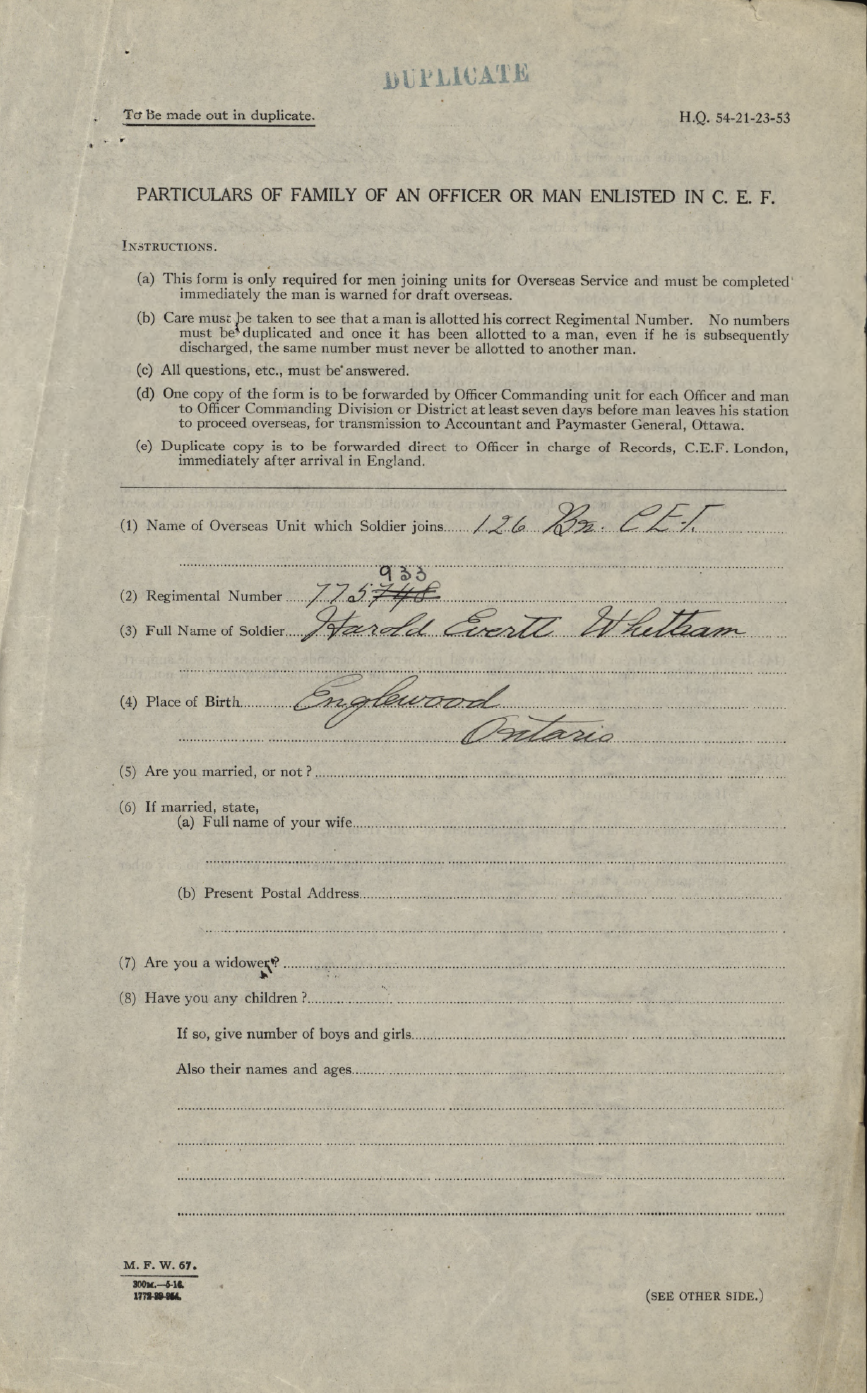 DUPLICATE
To Be made out in duplicate.
H.Q. 54-21-23-53
PARTICULARS OF FAMILY OF AN OFFICER OR MAN ENLISTED IN C. E. F.
INSTRUCTIONS.
(a) This form is only required for men joining units for Overseas Service and must be completed
immediately the man is warned for draft overseas.
(b) Care must be taken to see that a man is allotted his correct Regimental Number. No numbers
must be duplicated and once it has been allotted to a man, even if he is subsequently
discharged, the same number must never be allotted to another man.
(c) All questions, etc., must be answered.
(d) One copy of the form is to be forwarded by Officer Commanding unit for each Officer and man
to Officer Commanding Division or District at least seven days before man leaves his station
to proceed overseas, for transmission to Accountant and Paymaster General, Ottawa.
(e) Duplicate copy is to be forwarded direct to Officer in charge of Records, C.E.F. London,
immediately after arrival in England.
(1) Name of Overseas Unit which Soldier joins...... 126 Bn. C.E.F.
933
(2) Regimental Number ..... 775748
(3) Full Name of Soldier.... Harold Evertt Whettham
(4) Place of Birth............ Englewood
Ontario
(5) Are you married, or not ?
(6) If married, state,
(a) Full name of your wife
(b) Present Postal Address
(7) Are you a widower?
(8) Have you any children ?
If so, give number of boys and girls
Also their names and ages
M. F. W. 67.
300M.—5-16.
1772-39-954.
(SEE OTHER SIDE.)